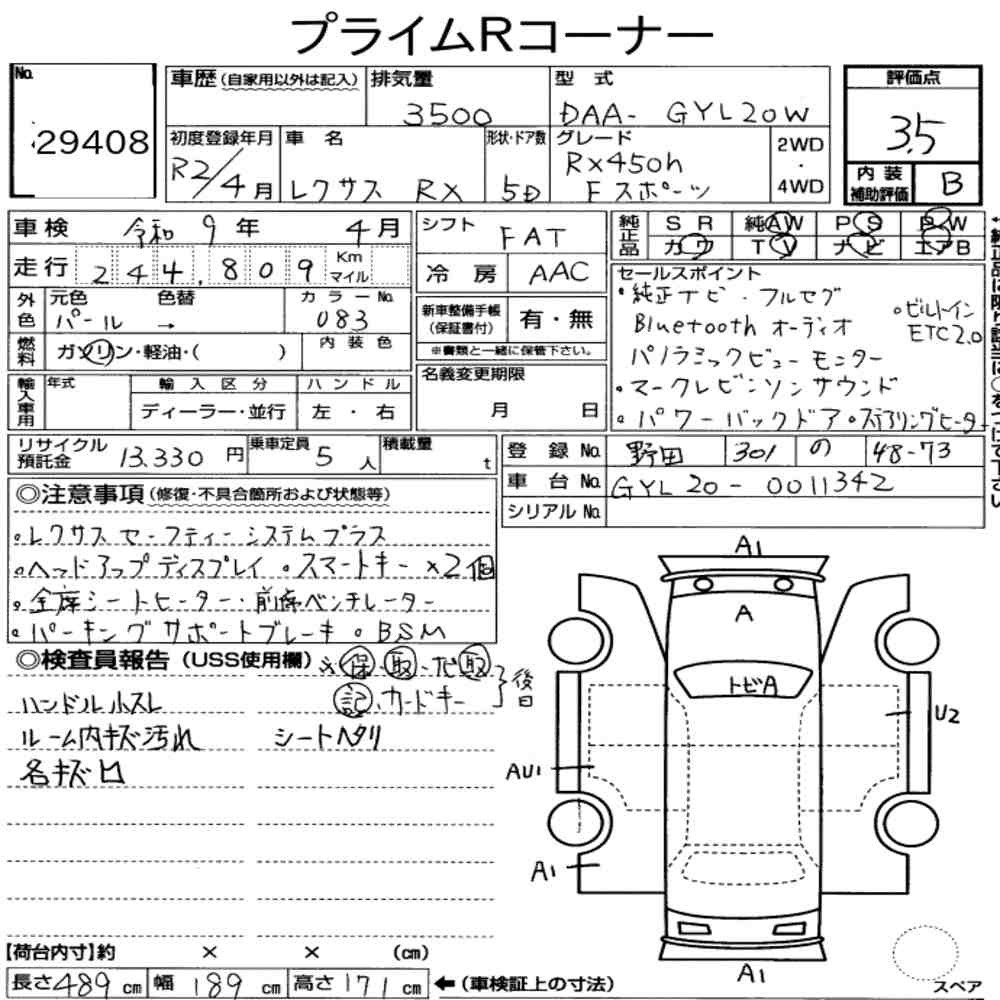 プライムRコーナー
No.
29408
車歴 (自家用以外は記入)
排気量
3500
型 式
DAA- GYL20W
評価点
3.5
初度登録年月
R2/4月
車 名
レクサス RX
形状・ドア数
5D
グレード
RX450h
Fスポーツ
2WD
・
4WD
内 装
補助評価
B
車検 令和 9年 4月
走行 244,809 Km マイル
シフト
FAT
冷 房
AAC
純正品
SR 純AW PS PW
カワ TV ナビ エアB
外色
元色
パール
色替
→
カラーNo.
083
燃料
ガソリン・軽油・( )
内装色
新車整備手帳
(保証書付)
有・無
※書類と一緒に保管下さい。
セールスポイント
・純正ナビ・フルセグ
Bluetooth オーディオ
パノラミックビューモニター
・マークレビンソンサウンド
・パワーバックドア・ステアリングヒーター
○ビルトイン
ETC2.0
輸入車用
年式
輸入区分
ディーラー・並行
ハンドル
左 ・ 右
名義変更期限
月 日
リサイクル
預託金
13.330 円
乗車定員
5 人
積載量
t
登録 No. 野田 301 の 48-73
車台 No. GYL20-0011342
シリアル No.
◎注意事項 (修復・不具合箇所および状態等)
・レクサスセーフティーシステムプラス
・ヘッドアップディスプレイ・スマートキー×2個
・全席シートヒーター・前席ベンチレーター
・パーキングサポートブレーキ・BSM
◎検査員報告 (USS使用欄) ※保・取・ナビ取
記・カードキー
後日
ハンドル小スレ
ルーム内キズ汚れ シートヘタリ
名キズ凹
A1
A
トビA
U2
AU1
A1
A1
スペア
【荷台内寸】約 × × (cm)
長さ489cm 幅189cm 高さ171cm ←(車検証上の寸法)